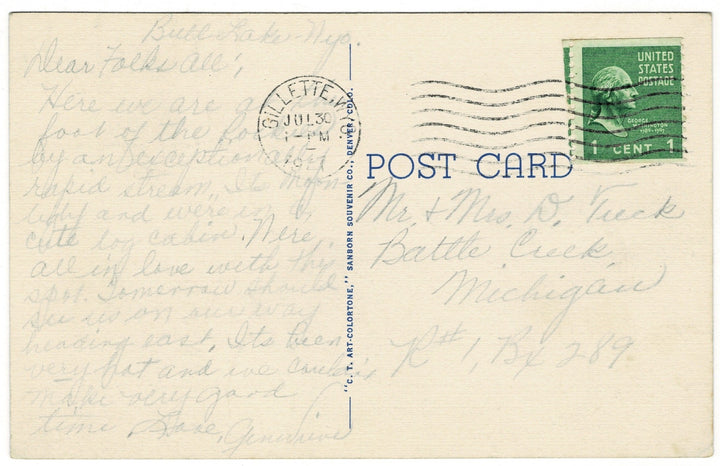 Bull Lake - Wyo.
Dear Folks All,
Here we are at the
foot of the
by an exceptionally
rapid stream. Its
and we're in a
cute log cabin. We're
all in love with this
spot. Tomorrow should
see us on our way
heading east. Its been
very hot and we couldn't
make very good
time Love, Genevieve
"C. T. ART-COLORTONE," SANBORN SOUVENIR CO., DENVER, COLO.
GILLETTE
JUL 30
1-PM
UNITED
STATES
POSTAGE
GEORGE
WASHINGTON
1789-1797
1 CENT 1
POST CARD
Mr. & Mrs. D. Tieck
Battle Creek
Michigan
R# 1, Bx 289